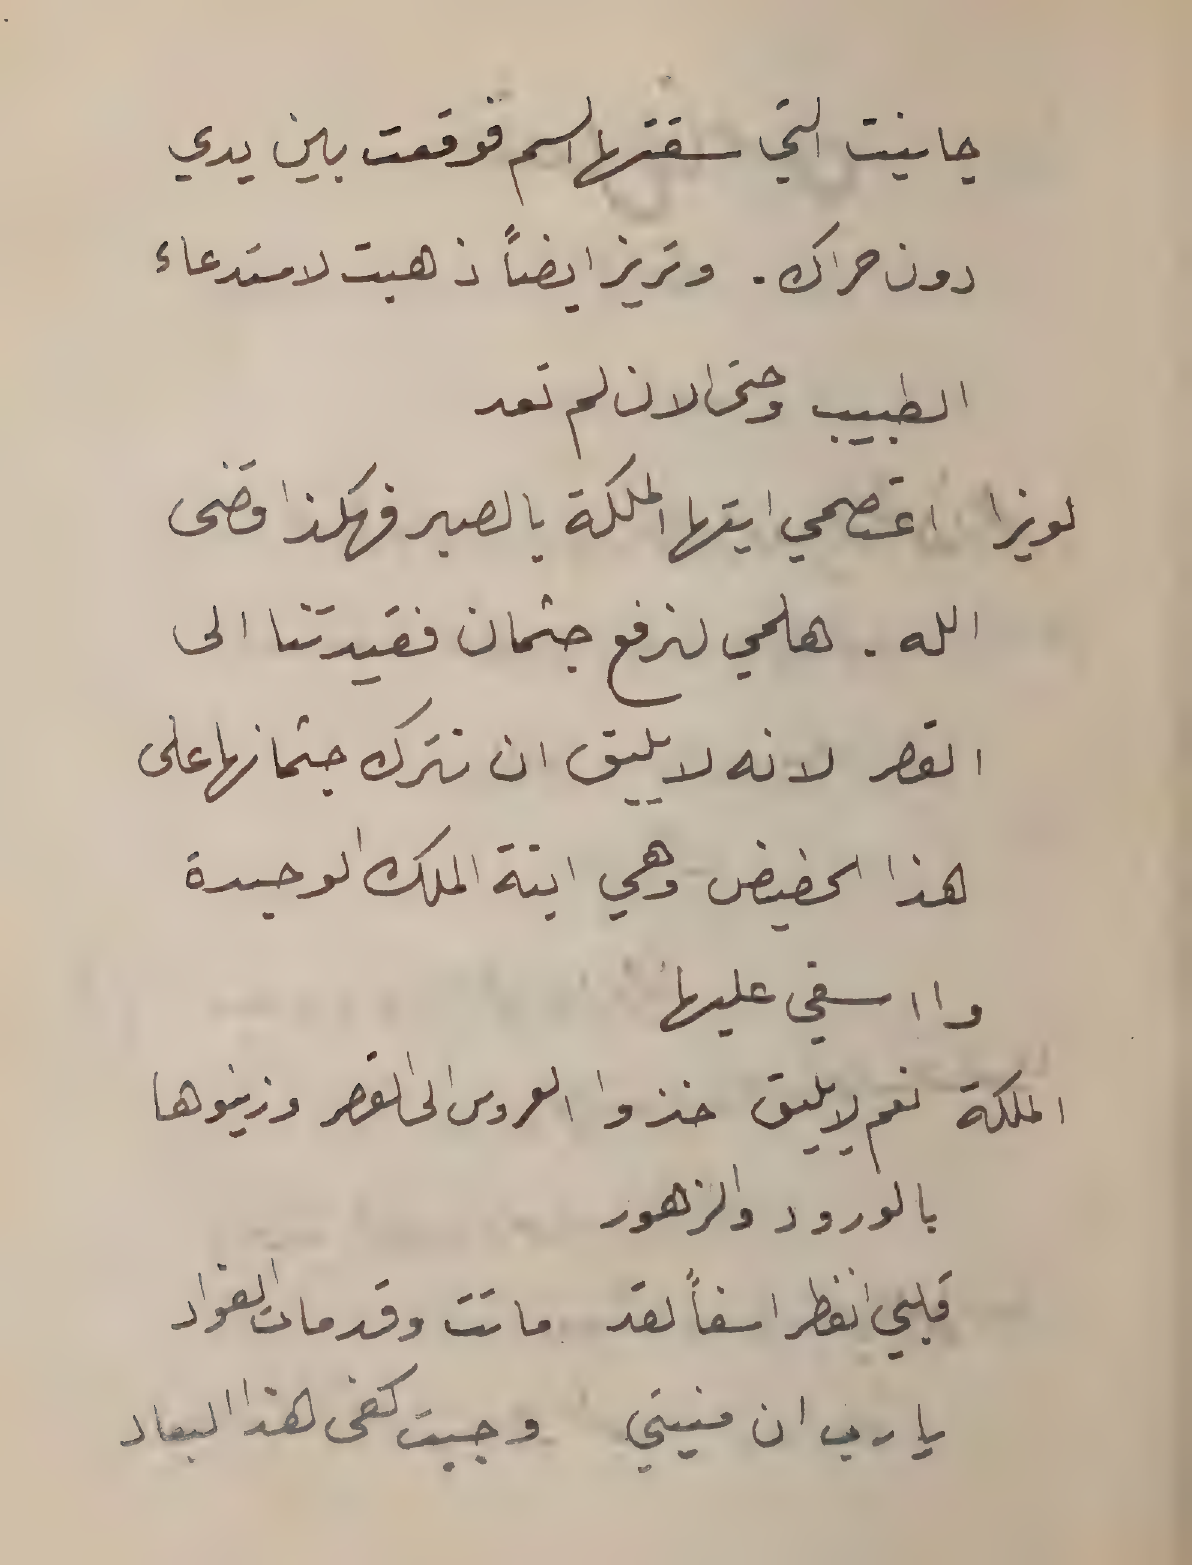 جانيت التي سقتها السم فوقعت بين يدي
دون حراك. وتريز ايضاً ذهبت لاستدعاء
الطبيب وحتى الان لم تعد
لويزا اعتصمي ايتها الملكة بالصبر فهكذا قضى
الله. هلمي لنرفع جثمان فقيدتنا الى
القصر لانه لا يليق ان نترك جثمانها على
هذا الحضيض وهي ابنة الملك الوحيدة
وا اسفي عليها
الملكة نعم لا يليق خذوا العروس الى القصر وزينوها
بالورود والزهور
قلبي انفطر اسفاً لقد ماتت وقد مات الفواد
يا رب ان منيتي وجبت كفى هذا البعاد